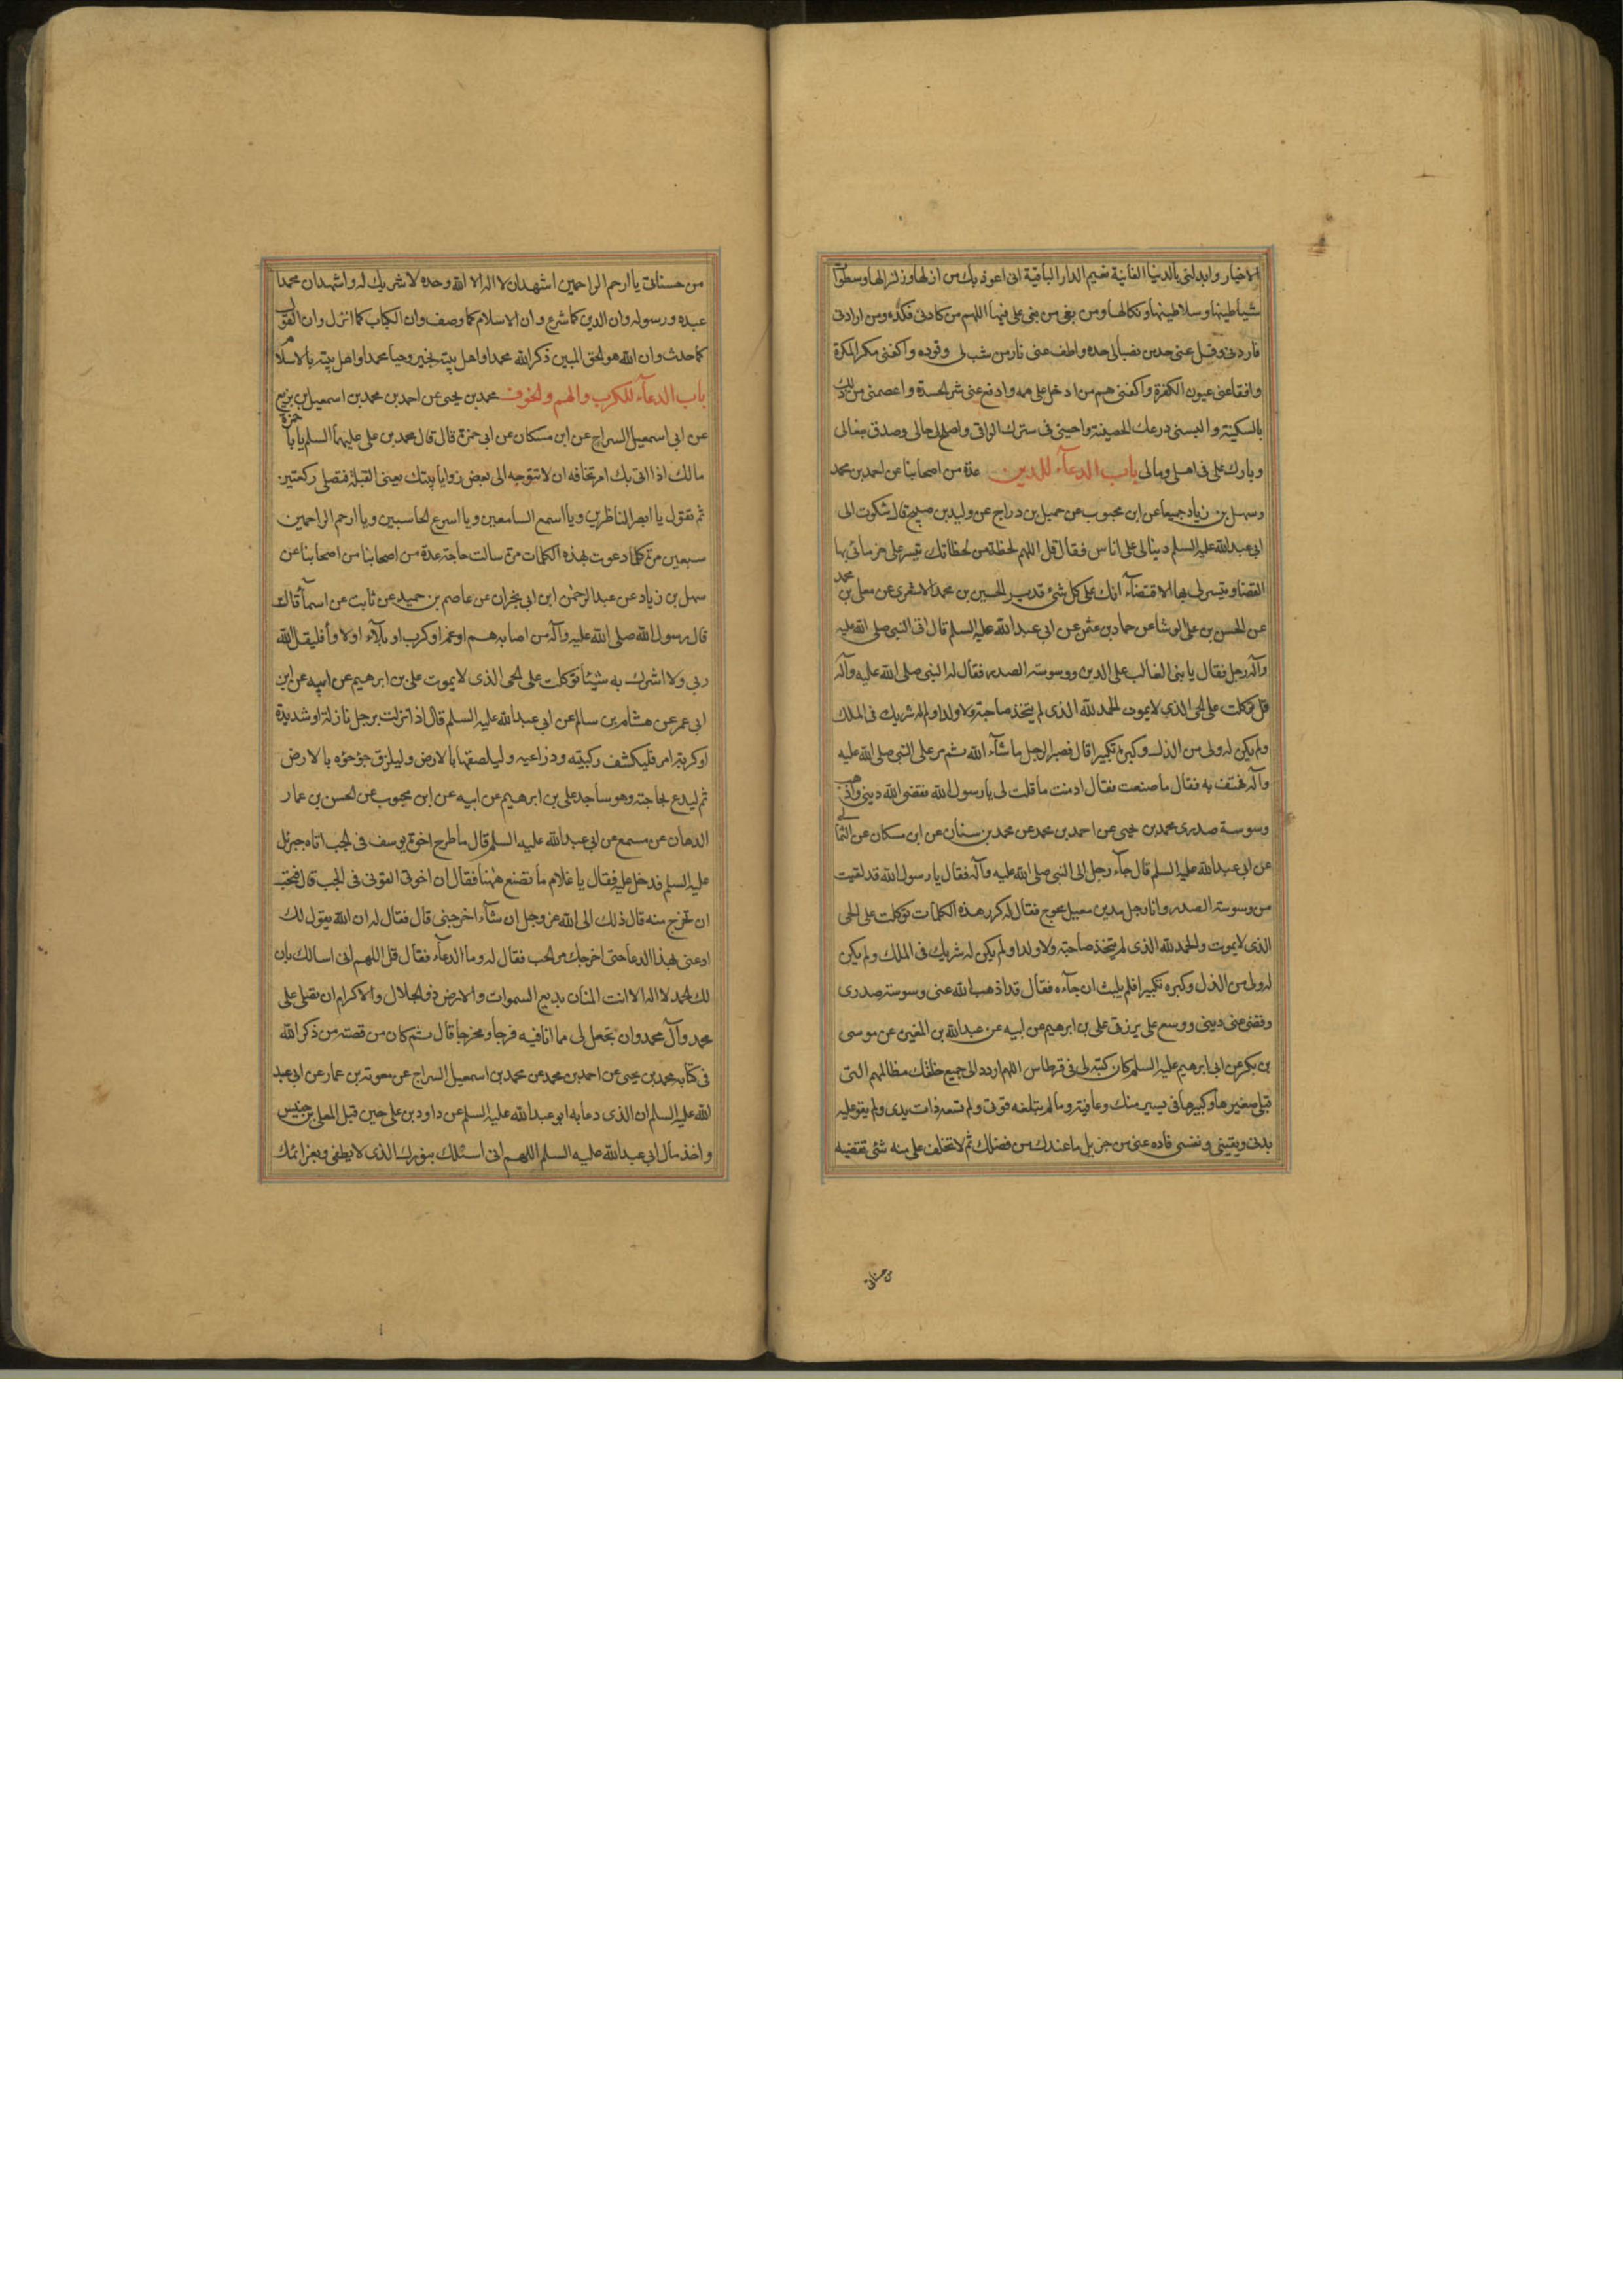 الاخيار وابدلنى بالدنيا الفانية نعيم الدار الباقية انى اعوذ بك من ازلها وزلزالها وسطوات
شياطينها وسلاطينها ونكالها ومن بغى من بغى على فيها اللهم من كادنى فكده ومن ارادنى
فارده وفل عنى حد من نصب لى حده واطف عنى نار من شب لى وقوده واكفنى مكر المكرة
وافقا عنى عيون الكفرة واكفنى هم من ادخل على همه وادفع عنى شر الحسدة واعصمنى من ذلك
بالسكينة والبسنى درعك الحصينة واحينى فى سترك الواقى واصلح لى حالى وصدق مقالى
وبارك على فى اهلى ومالى باب الدعآء للدين عدة من اصحابنا عن احمد بن محمد
وسهل بن زياد جميعا عن ابن محبوب عن جميل بن دراج عن وليد بن صبيح قال شكوت الى
ابى عبد الله عليه السلم دينا لى على اناس فقال قل اللهم لحظة من لحظاتك تيسر على غرمائى بها
القضا وتيسر لى بها الاقتضآء انك على كل شئ قدير الحسين بن محمد الاشعرى عن معلى بن محمد
عن الحسن بن على الوشا عن حماد بن عثمن عن ابى عبد الله عليه السلم قال اتى النبى صلى الله عليه
وآله رجل فقال يا نبى الغالب على الدين ووسوسة الصدر فقال له النبى صلى الله عليه وآله
قل توكلت على الحى الذى لا يموت الحمد لله الذى لم يتخذ صاحبة ولا ولدا ولم له شريك فى الملك
ولم يكن له ولى من الذل وكبره تكبيرا قال فصبر الرجل ما شآء الله ثم مر على النبى صلى الله عليه
وآله فهتف به فقال ما صنعت فقال ادمنت ما قلت لى يا رسول الله فقضى الله دينى واذهب
وسوسة صدرى محمد بن يحيى عن احمد بن محمد عن محمد بن سنان عن ابن مسكان عن الثمالى
عن ابى عبد الله عليه السلم قال جآء رجل الى النبى صلى الله عليه وآله فقال يا رسول الله قد لقيت
من وسوسة الصدر وانا رجل مدين معيل محوج فقال له كرر هذه الكلمات توكلت على الحى
الذى لا يموت والحمد لله الذى لم يتخذ صاحبة ولا ولدا ولم يكن له شريك فى الملك ولم يكن
له ولى من الذل وكبره تكبيرا فلم يلبث ان جآءه فقال قد اذهب الله عنى وسوسة صدرى
وقضى عنى دينى ووسع على رزقى على بن ابرهيم عن ابيه عن عبد الله بن المغيرة عن موسى
بن بكر عن ابى ابرهيم عليه السلم كان كتبه لى فى قرطاس اللهم اردد الى جميع خلقك مظالمهم التى
قبلى صغيرها وكبيرها فى يسير منك وعافية وما لم تبلغه قوتى ولم تسعه ذات يدى ولم يقو عليه
بدنى ويقينى ونفسى فاده عنى من جزيل ما عندك من فضلك ثم لا تخلف على منه شئ تقضيه
من حسناتى
من حسناتى يا ارحم الراحمين اشهد ان لا اله الا الله وحده لا شريك له واشهد ان محمدا
عبده ورسوله وان الدين كما شرع وان الاسلام كما وصف وان الكتاب كما انزل وان القول
كما حدث وان الله هو الحق المبين ذكر الله محمدا واهل بيته بخير وحيا محمدا واهل بيته بالاسلام
باب الدعآء للكرب والهم والخوف محمد بن يحيى عن احمد بن محمد بن اسمعيل بن بزيع
عن ابى اسمعيل السراج عن ابن مسكان عن ابى حمزة قال قال محمد بن على عليهما السلم يا با حمزة
مالك اذا اتى بك امر تخافه ان لا تتوجه الى بعض زوايا بيتك يعنى القبلة فتصلى ركعتين
ثم تقول يا ابصر الناظرين ويا اسمع السامعين ويا اسرع الحاسبين ويا ارحم الراحمين
سبعين مرة كلما دعوت بهذه الكلمات مرة سالت حاجة عدة من اصحابنا من اصحابنا عن
سهل بن زياد عن عبد الرحمن ابن ابى نجران عن عاصم بن حميد عن ثابت عن اسمآ قالت
قال رسول الله صلى الله عليه وآله من اصابه هم او غم او كرب او بلآء او لاوا فليقل الله
ربى ولا اشرك به شيئا توكلت على الحى الذى لا يموت على بن ابرهيم عن ابيه عن ابن
ابى عمر عن هشام بن سالم عن ابى عبد الله عليه السلم قال اذا نزلت برجل نازلة او شديدة
او كربة امر فليكشف ركبتيه وذراعيه وليلصقها بالارض وليلزق جؤجؤه بالارض
ثم ليدع بحاجته وهو ساجد على بن ابرهيم عن ابيه عن ابن محبوب عن الحسن بن عمار
الدهان عن مسمع عن ابى عبد الله عليه السلم قال ما طرح اخوة يوسف فى الجب اتاه جبرئل
عليه السلم فدخل عليه فقال يا غلام ما تصنع ههنا فقال ان اخوتى القونى فى الجب قال فتحب
ان تخرج منه قال ذلك الى الله عز وجل ان شآء اخرجنى قال فقال له ان الله يقول لك
ادعنى بهذا الدعا حتى اخرجك من الجب فقال له وما الدعآء فقال قل اللهم انى اسالك بان
لك الحمد لا اله الا انت المنان بديع السموات والارض ذو الجلال والاكرام ان تصلى على
محمد وآل محمد وان تجعل لى مما انا فيه فرجا ومخرجا قال ثم كان من قصته من ذكر الله
فى كتابه محمد بن يحيى عن احمد بن محمد عن محمد بن اسمعيل السراج عن معوية بن عمار عن ابى عبد
الله عليه السلم ان الذى دعا به ابو عبد الله عليه السلم عن داود بن على حين قتل المعلى بن خنيس
واخذ مال ابى عبد الله عليه السلم اللهم انى اسئلك بنورك الذى لا يطفى وبعزائمك